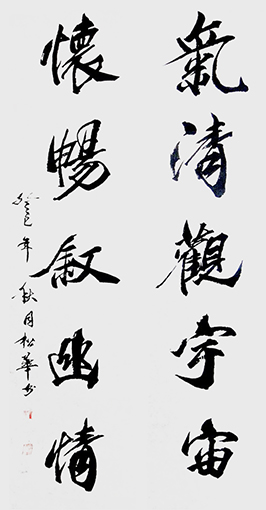 氣清觀宇宙
懷暢叙幽情
癸巳年秋月松華书